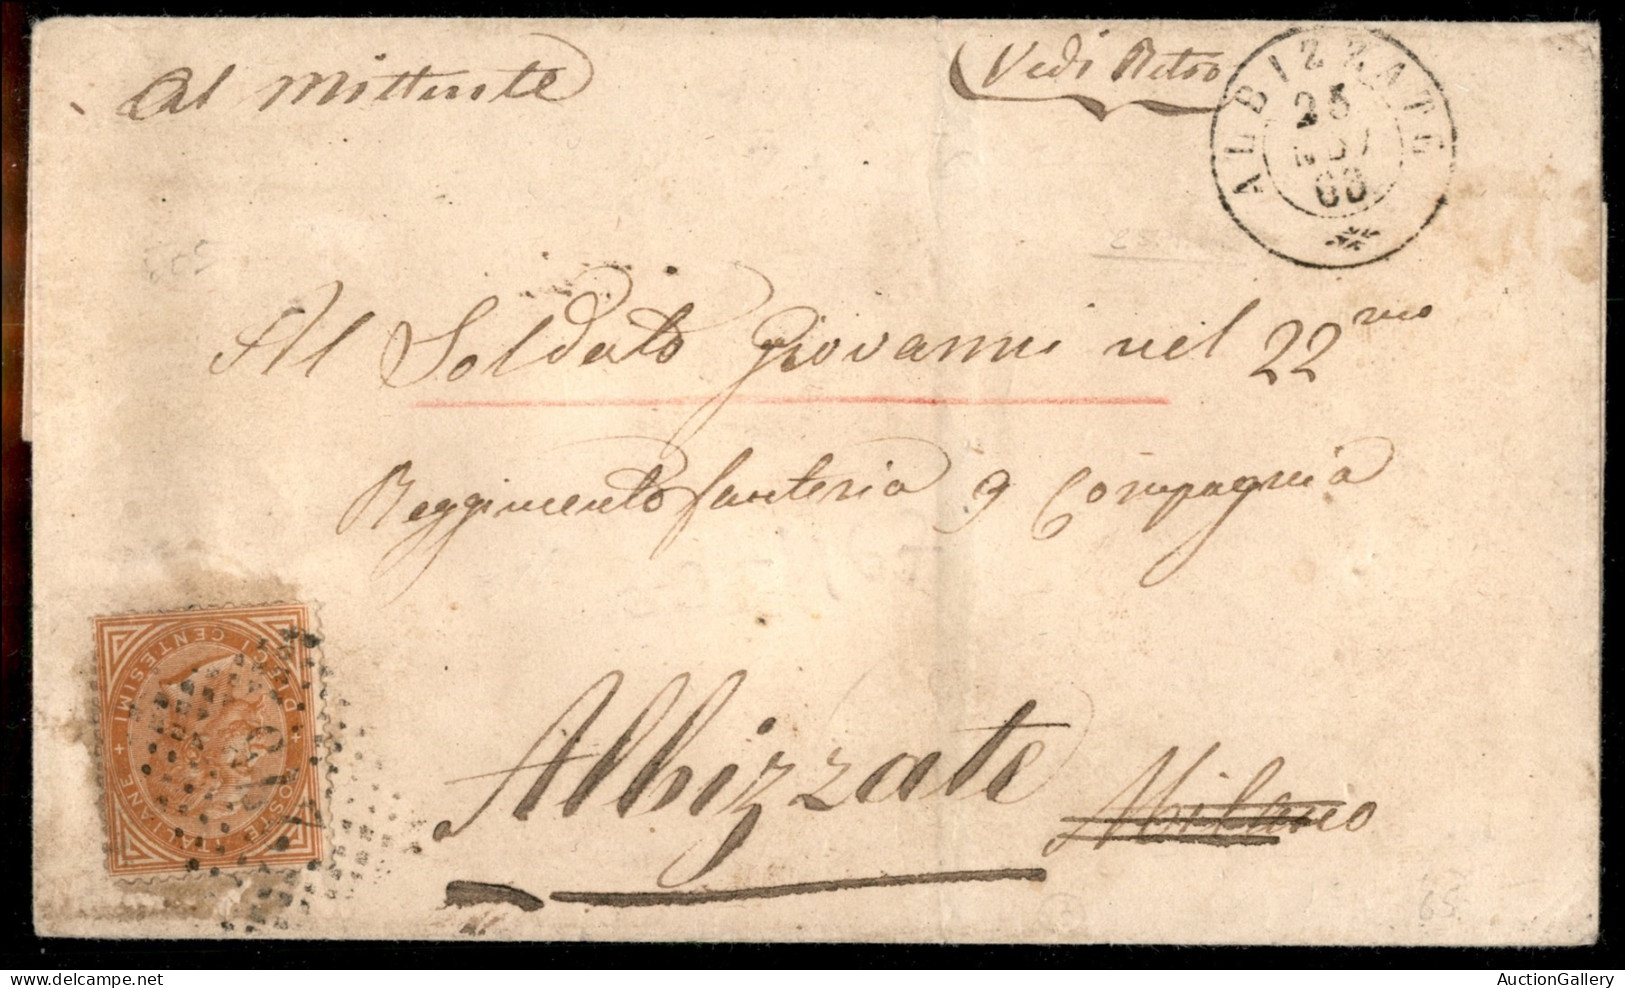 Al Mittente
Vedi Retro
ALBIZZATE
25
68
Al Soldato Giovanni nel 22mo
Reggimento fanteria 9 Compagnia
Albizzate Milano
POSTE ITALIANE + DIECI CENTESIMI +
65
AuctionGallery